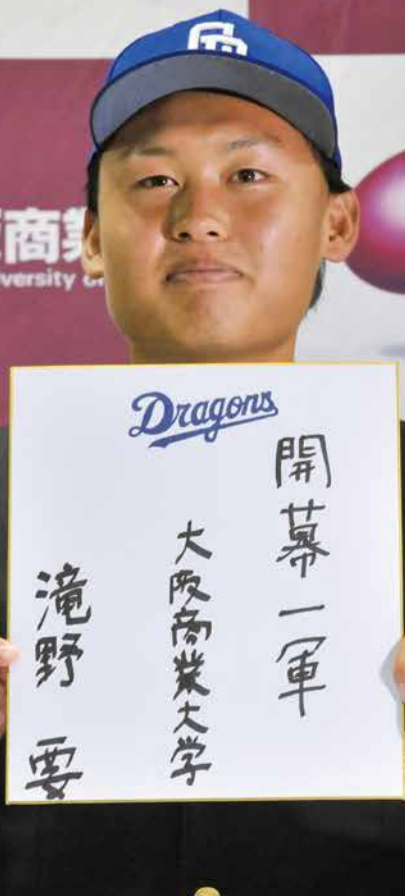 商業
versity o
Dragons
開幕一軍
大阪商業大学
滝野 要